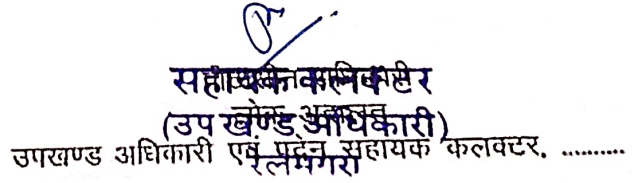 सहायक कलक्टर
(उप खण्ड अधिकारी)
उपखण्ड अधिकारी एवं पदेन सहायक कलक्टर. ..........
रेलमगरा